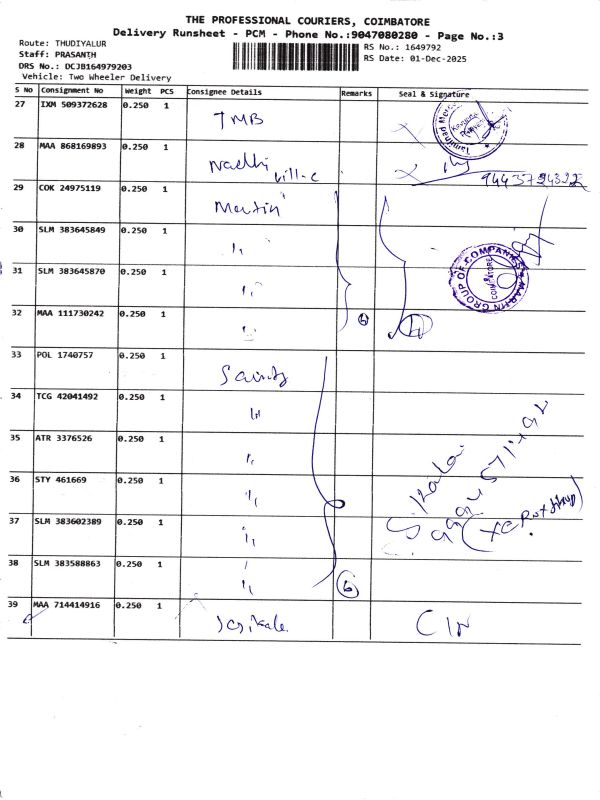 THE PROFESSIONAL COURIERS, COIMBATORE
Delivery Runsheet - PCM - Phone No.:9047080280 - Page No.:3
Route: THUDIYALUR
Staff: PRASANTH
DRS No.: DCJB164979203
Vehicle: Two Wheeler Delivery
RS No.: 1649792
RS Date: 01-Dec-2025
S No Consignment No Weight PCS Consignee Details Remarks Seal & Signature
27 IXM 509372628 0.250 1 TMB
28 MAA 868169893 0.250 1
29 COK 24975119 0.250 1 Martin
30 SLM 383645849 0.250 1 "
31 SLM 383645870 0.250 1 "
32 MAA 111730242 0.250 1 " 6
MARTIN GROUP OF COMPANIES
COIMBATORE
33 POL 1740757 0.250 1 Saints
34 TCG 42041492 0.250 1 "
35 ATR 3376526 0.250 1 "
36 STY 461669 0.250 1 "
37 SLM 383602389 0.250 1 "
38 SLM 383588863 0.250 1 " 6
39 MAA 714414916 0.250 1